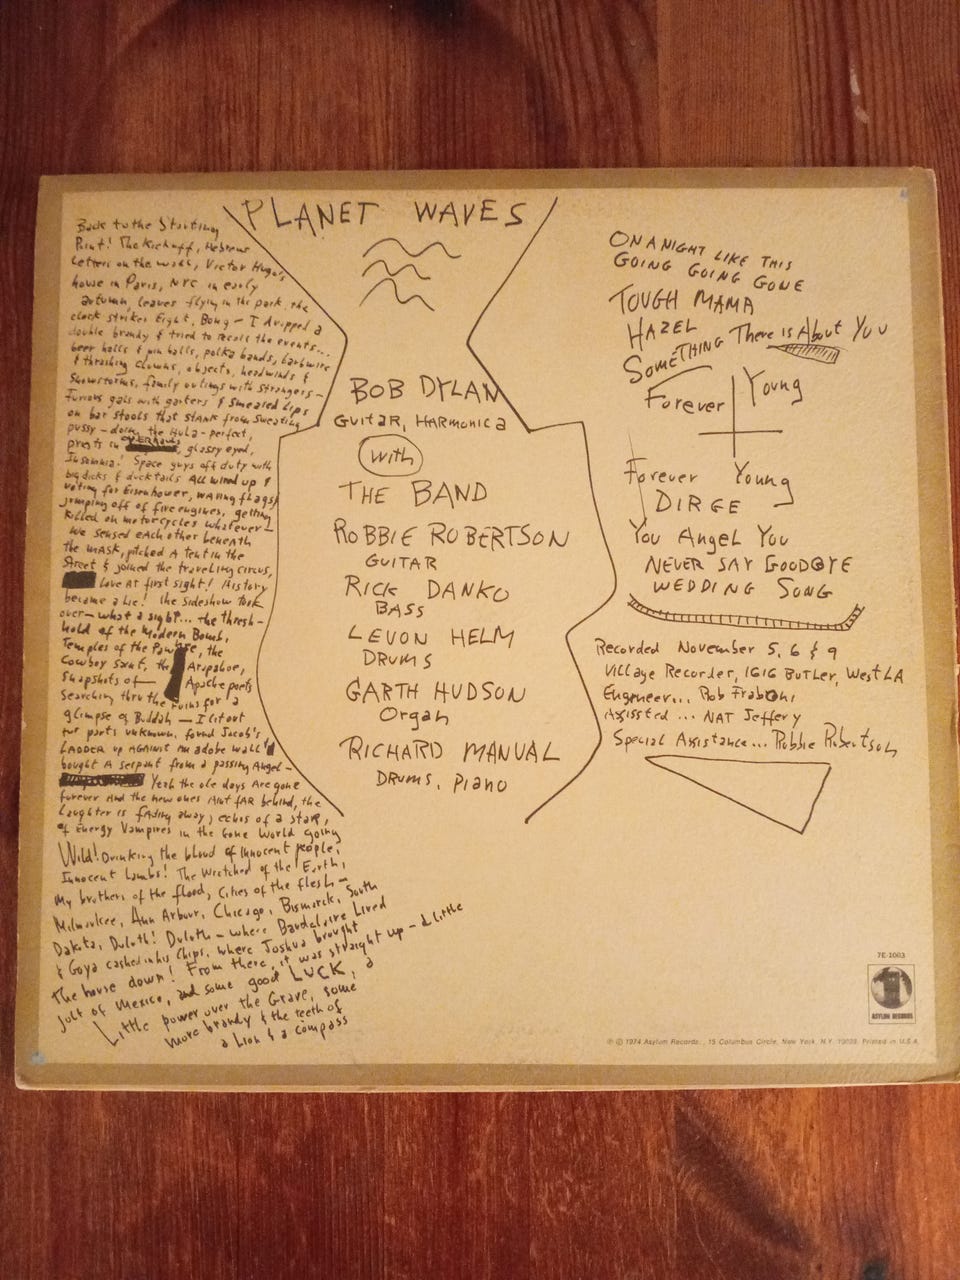 PLANET WAVES
Back to the Starting
Point! The Kickoff, Hebrew
Letters on the wall, Victor Hugo's
house in Paris, NYC in early
autumn, leaves flying in the park, the
clock strikes Eight, Bong – I dropped a
double brandy & tried to recall the events...
beer halls & pin balls, polka bands, barbwire
& thrashing clowns, objects, headwinds &
Snowstorms, family outings with strangers –
Furious gals with garters & smeared Lips
on bar stools that stank from sweating
pussy – doing the Hula – perfect,
priests in OVERHAULS, glassy eyed,
Insomnia! Space guys off duty with
big dicks & ducktails All wired up &
voting for Eisenhower, waving flags &
jumping off of fire engines, getting
killed on motorcycles whatever –
We sensed each other beneath
the mask, pitched A tent in the
Street & joined the traveling circus,
Love At first sight! History
became a Lie! the sideshow took
over – what a sight... the thresh-
hold of the Modern Bomb,
Temples of the Pawnee, the
Cowboy Saint, the Arapahoe,
Snapshots of Apache poets
Searching thru the ruins for a
glimpse of Buddah – I lit out
for parts unknown, found Jacob's
LADDER up AGAINST an adobe wall &
bought A serpent from a passing Angel –
Yeah the ole days Are gone
forever And the new ones Aint fAR behind, the
Laughter is fAding away, echos of a staR,
of Energy Vampires in the Gone World going
Wild! Drinking the blood of Innocent people,
Innocent Lambs! The Wretched of the Earth,
My brothers of the flood, Cities of the flesh –
Milwaukee, Ann Arbour, Chicago, Bismarck, South
Dakota, Duluth! Duluth – where Baudelaire Lived
& Goya cashed in his Chips, where Joshua brought
The house down! From there, it was straight up – a little
jolt of Mexico, and some good LUCK, a
Little power over the Grave, some
more brandy & the teeth of
a Lion & a compass
BOB DYLAN
GUITAR, HARMONICA
with
THE BAND
ROBBIE ROBERTSON
GUITAR
RICK DANKO
BASS
LEVON HELM
DRUMS
GARTH HUDSON
Organ
RICHARD MANUAL
DRUMS, Piano
ON A NIGHT LIKE THIS
GOING GOING GONE
TOUGH MAMA
HAZEL
SOMETHING There is About You
Forever Young
Forever Young
DIRGE
You Angel You
NEVER SAY GOODBYE
WEDDING SONG
Recorded November 5, 6 & 9
Village Recorder, 1616 Butler, West LA
Engeneer... Rob Fraboni
Assisted ... NAT Jeffery
Special Assistance... Robbie Robertson
7E-1003
ASYLUM RECORDS
℗ © 1974 Asylum Records, 15 Columbus Circle, New York, N.Y. 10023. Printed in U.S.A.